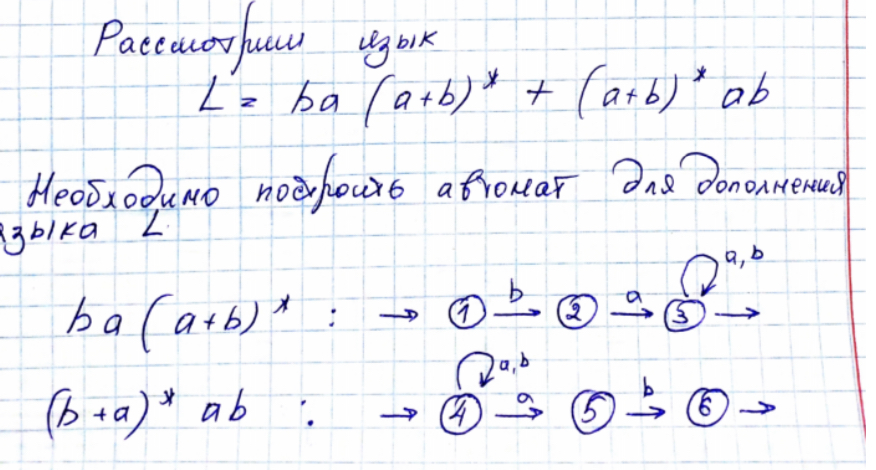 Рассмотрим язык
L = ba (a+b)* + (a+b)* ab
Необходимо построить автомат для дополнения
языка L
ba (a+b)* : → 1 b → 2 a → 3 a, b →
(b+a)* ab : → 4 a, b a → 5 b → 6 →